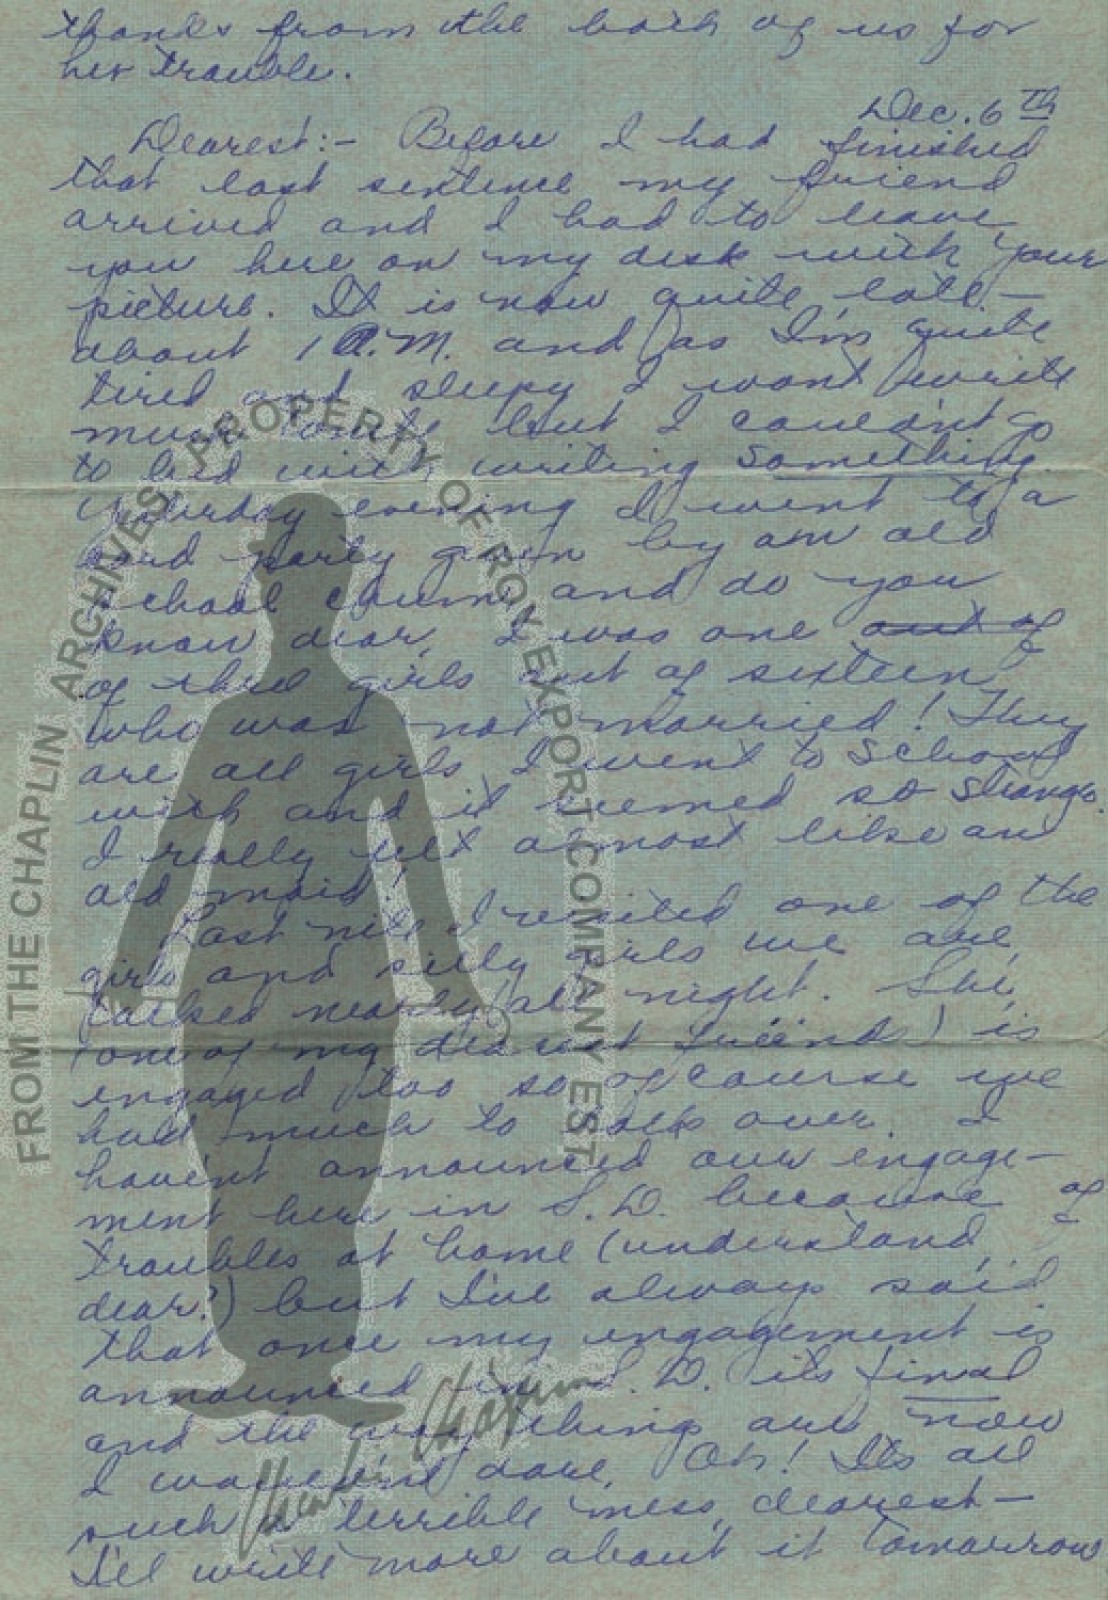 thanks from the both of us for
her trouble.
Dec. 6th
Dearest:- Before I had finished
that last sentence my friend
arrived and I had to leave
you here on my desk with your
picture. It is now quite late -
about 1 A.M. and as I'm quite
tired and sleepy I wont write
much but I couldn't go
to bed with writing something.
Yesterday evening I went to a
card party given by an old
school chum and do you
know dear, I was one out of
of three girls out of sixteen
who was not married! They
are all girls I went to school
with and it seemed so strange.
I really felt almost like an
old maid!
Last nite I visited one of the
girls and silly girls we are,
talked nearly all night. She,
(one of my dearest friends) is
engaged too so of course we
had much to talk over. I
haven't announced our engage-
ment here in S.D. because of
troubles at home (understand,
dear?) but I've always said
that once my engagement is
announced in S.D. its final
and the way things are now
I wouldn't dare. Oh! Its all
such a terrible mess, dearest -
I'll write more about it tomorrow
FROM THE CHAPLIN ARCHIVES, PROPERTY OF ROY EXPORT COMPANY EST
Charlie Chaplin